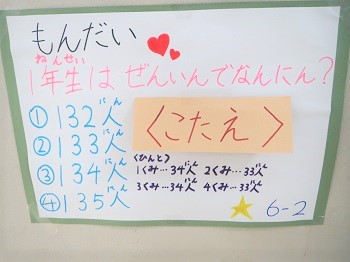 もんだい
1年生は ぜんいんでなんにん?
ねんせい
①132人
にん
②133人
にん
③134人
にん
④135人
にん
〈こたえ〉
〈ひんと〉
1くみ…34人 2くみ…33人
にん にん
3くみ…34人 4くみ…33人
にん にん
6-2